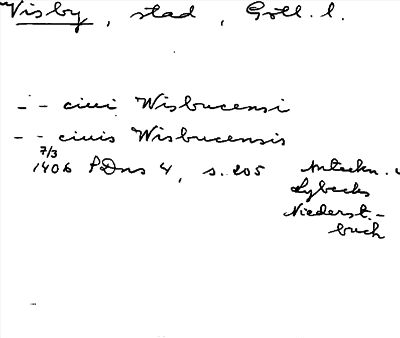 Visby, stad, Gotl. l.
– – civi Wisbucensi
– – civis Wisbucensis
7/3
1406 SDns 4, s. 205 Anteckn. u
Lybecks
Niederst.-
buch